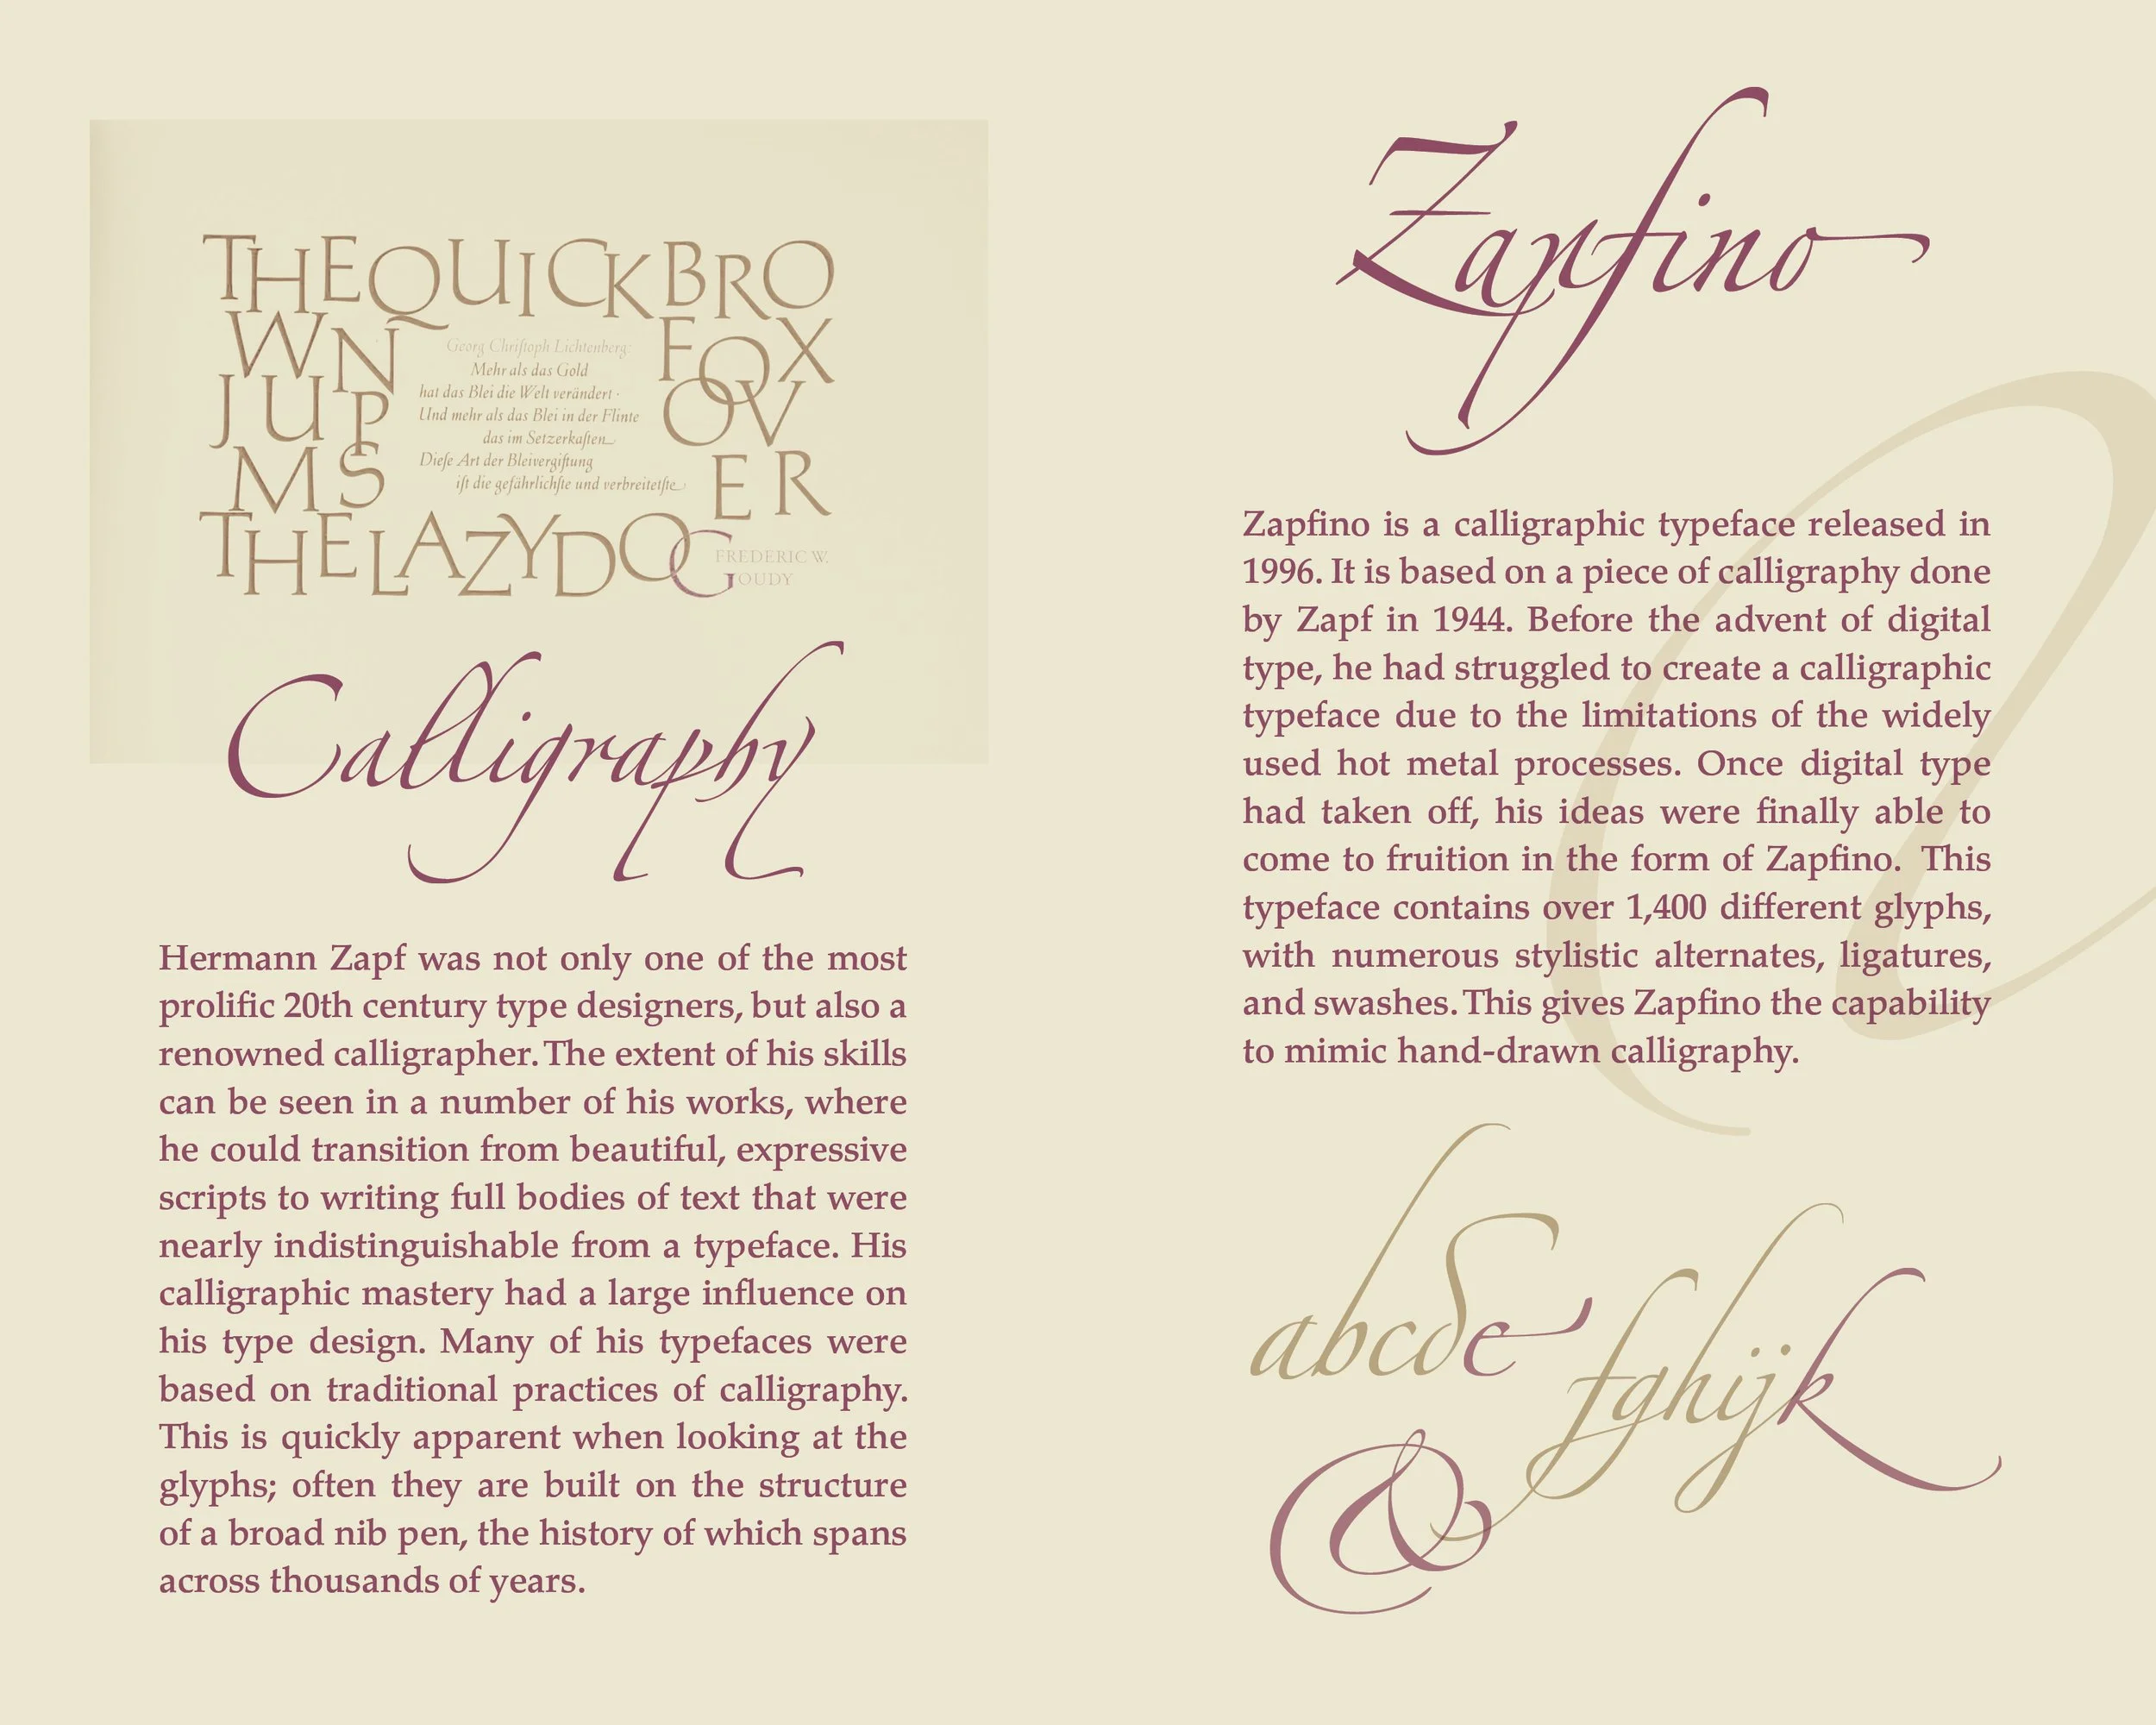 THE QUICK BRO
WN FOX
JUP OV
MS ER
THE LAZY DOG
Georg Chriſtoph Lichtenberg:
Mehr als das Gold
hat das Blei die Welt verändert ·
Und mehr als das Blei in der Flinte
das im Setzerkaſten
Dieſe Art der Bleivergiftung
iſt die gefährlichſte und verbreitetſte
FREDERIC W.
GOUDY
Calligraphy
Hermann Zapf was not only one of the most
prolific 20th century type designers, but also a
renowned calligrapher. The extent of his skills
can be seen in a number of his works, where
he could transition from beautiful, expressive
scripts to writing full bodies of text that were
nearly indistinguishable from a typeface. His
calligraphic mastery had a large influence on
his type design. Many of his typefaces were
based on traditional practices of calligraphy.
This is quickly apparent when looking at the
glyphs; often they are built on the structure
of a broad nib pen, the history of which spans
across thousands of years.
Zapfino
Zapfino is a calligraphic typeface released in
1996. It is based on a piece of calligraphy done
by Zapf in 1944. Before the advent of digital
type, he had struggled to create a calligraphic
typeface due to the limitations of the widely
used hot metal processes. Once digital type
had taken off, his ideas were finally able to
come to fruition in the form of Zapfino. This
typeface contains over 1,400 different glyphs,
with numerous stylistic alternates, ligatures,
and swashes. This gives Zapfino the capability
to mimic hand-drawn calligraphy.
a
abcde
fghijk
&